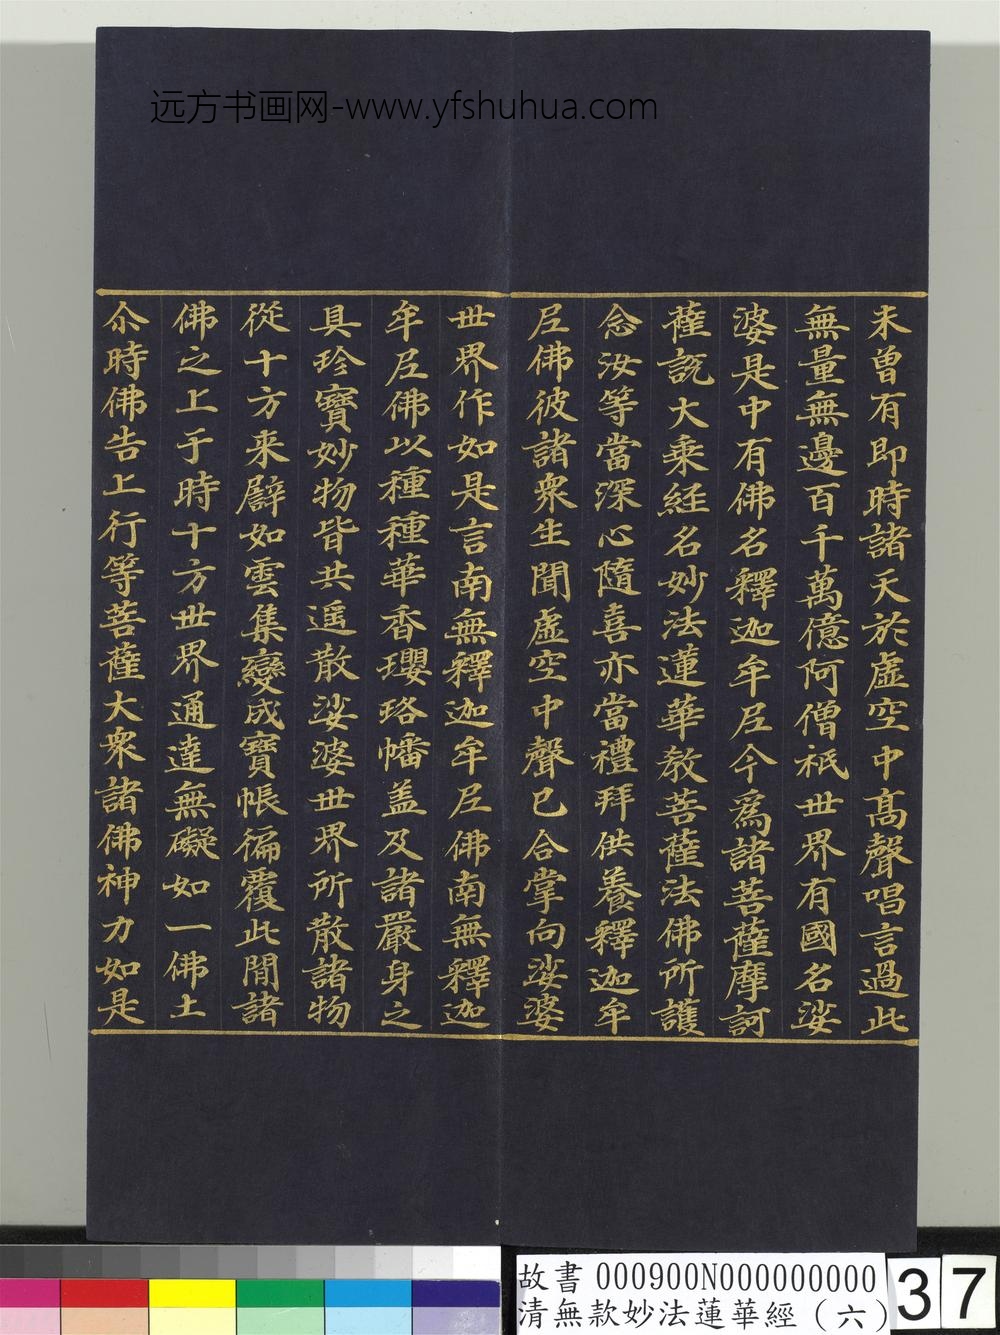 远方书画网-www.yfshuhua.com
未曽有即時諸天於虛空中髙聲唱言過此
無量無邊百千萬億阿僧祇世界有國名娑
婆是中有佛名釋迦牟尼今爲諸菩薩摩訶
薩説大乗經名妙法蓮華教菩薩法佛所護
念汝等當深心隨喜亦當禮拜供養釋迦牟
尼佛彼諸衆生聞虛空中聲已合掌向娑婆
世界作如是言南無釋迦牟尼佛南無釋迦
牟尼佛以種種華香瓔珞幡盖及諸嚴身之
具珍寶妙物皆共遥散娑婆世界所散諸物
從十方来譬如雲集變成寶帳徧覆此間諸
佛之上于時十方世界通達無礙如一佛土
尒時佛告上行等菩薩大衆諸佛神力如是
故書 000900N000000000
清無款妙法蓮華經（六）
37